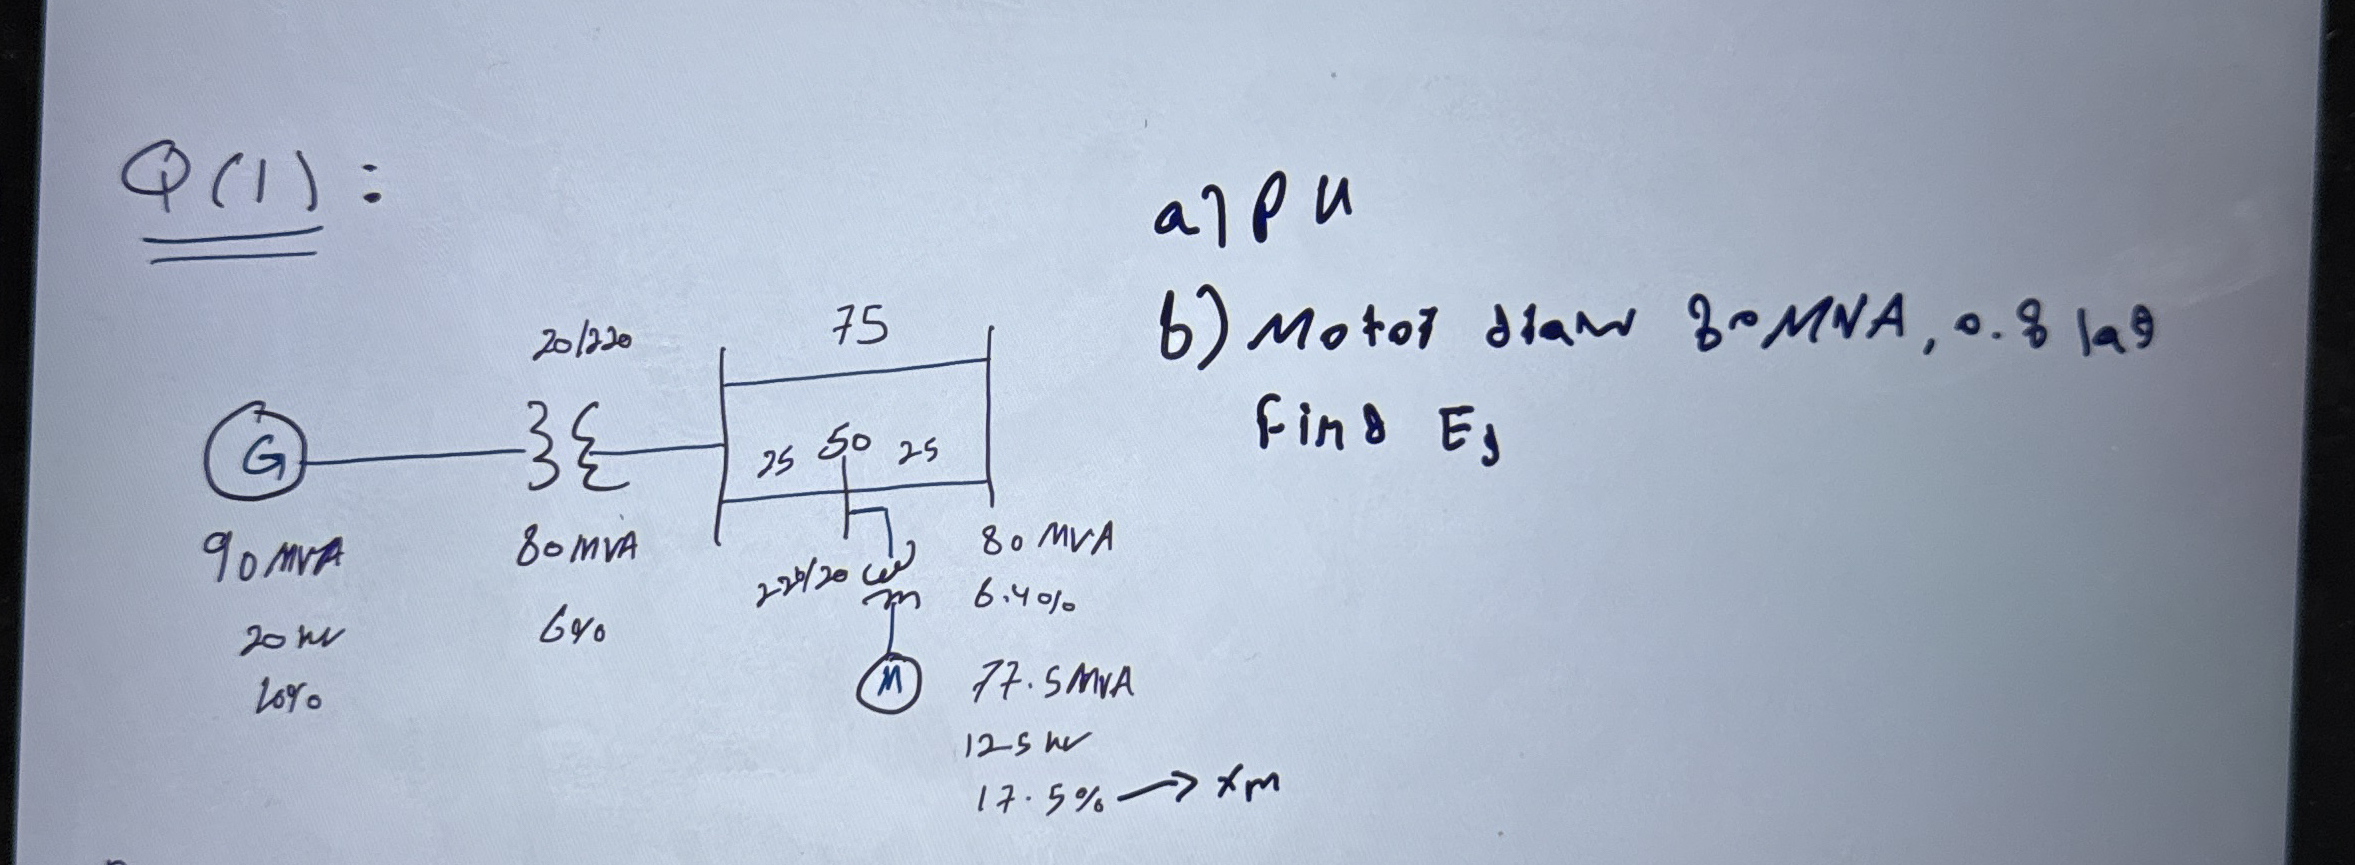 Q(1):
a) PU
b) Motor draw 80 MVA, 0.8 lag
Find Eg
75
20/220
25 50 25
G
90 MVA
80 MVA
20 kV
6%
220/20
80 MVA
6.4%
M
77.5 MVA
17.5% → Xm